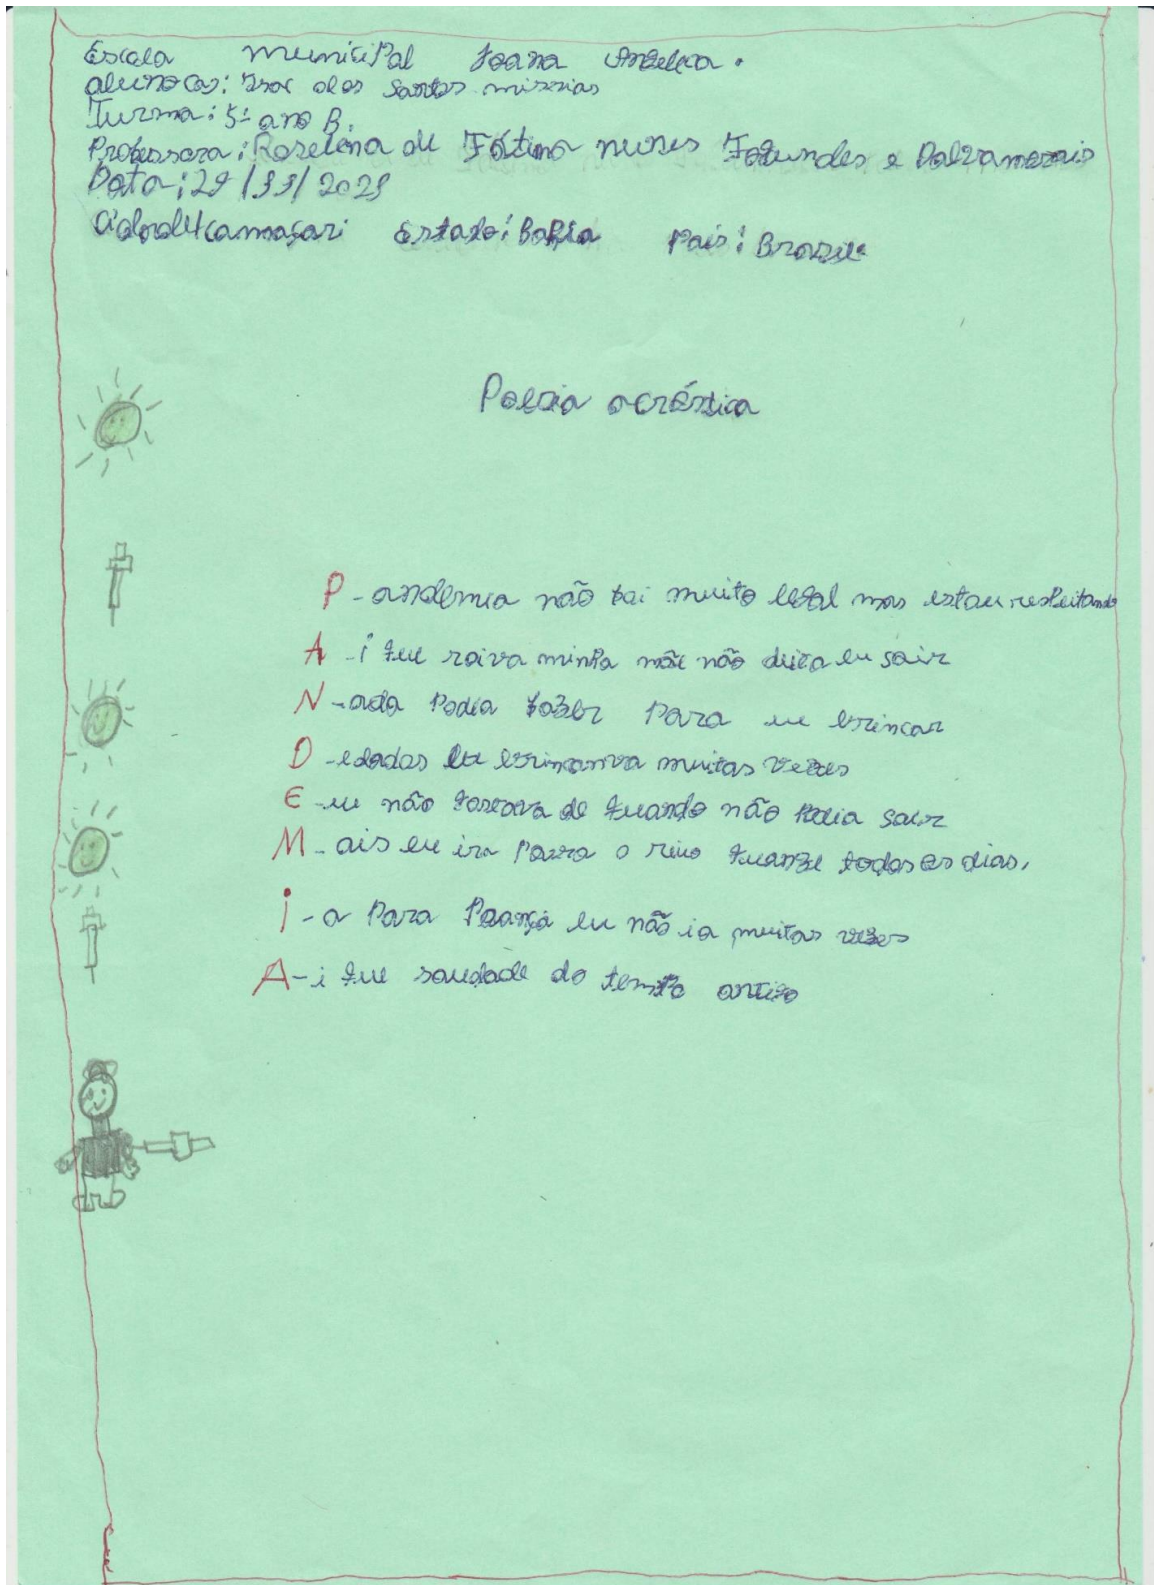 Escola municipal Joana Angelica.
aluno(a): Isac dos Santos missias
Turma: 5º ano B.
Professora: Roselena de Fátima nunes Fagundes e Dalva morais
Data: 29/11/2021
Cidade: Camaçari Estado: Bahia País: Brazil.
Poesia acróstica
P-andemia não foi muito legal mas estou respeitando
A-i que raiva minha mãe não deixa eu sair
N-ada Podia fazer Para eu brincar
D-
E-eu não gostava de quando não Podia sair
M-ais eu ira Parra o reino quanze todos os dias.
I-a Para eu não ia muitas vezes
A-i que saudade do tempo antigo